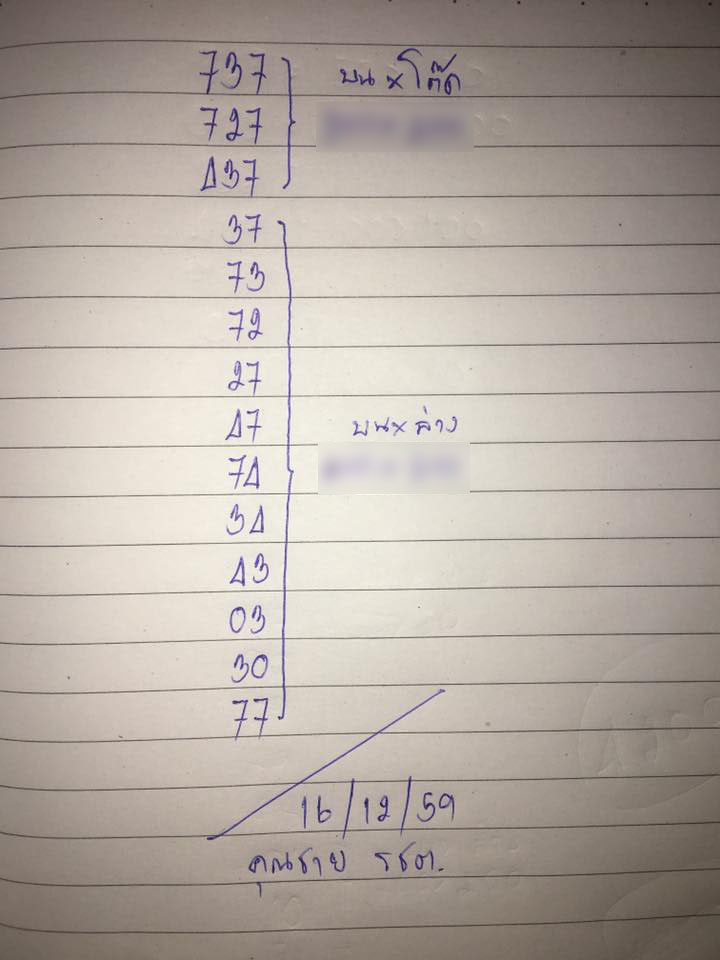 737
727
437
บน x โต๊ด
37
73
72
27
47
74
34
43
03
30
77
บน x ล่าง
16/12/59
คุณชาย รชต.